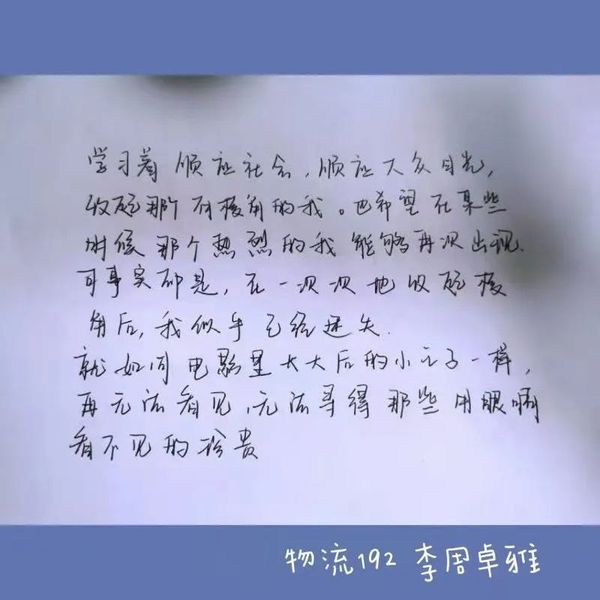 学习着顺应社会,顺应大众目光,
收敛那个有棱角的我。也希望在某些
时候那个热烈的我能够再次出现.
可事实却是,在一次次地收敛棱
角后,我似乎已经迷失.
就如同电影里长大后的小王子一样,
再无法看见,无法寻得那些用眼睛
看不见的珍贵
物流192 李周卓雅